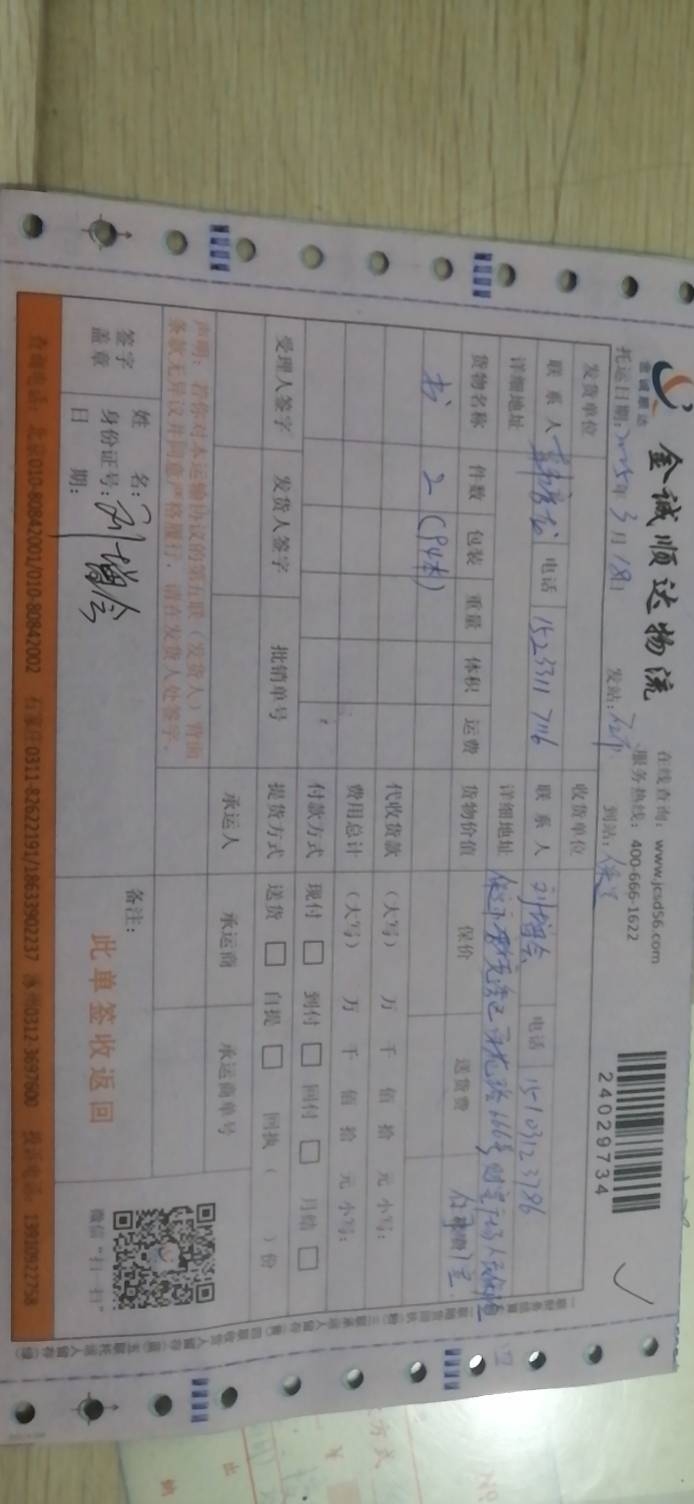 金诚顺达
金诚顺达物流
在线查询：www.jcsd56.com
服务热线：400-666-1622
24029734
托运日期：2025年3月18日 发站： 到站：保定
发货单位 收货单位
联系人 电话 15233117116 联系人 刘增会 电话 15103123786
详细地址 详细地址
货物名称 件数 包装 重量 体积 运费 货物价值 保价 送货费
书 2（94本）
代收货款 （大写） 万 仟 佰 拾 元 小写：
费用总计 （大写） 万 仟 佰 拾 元 小写：
付款方式 现付 □ 到付 □ 回付 □ 月结 □
受理人签字 发货人签字 批销单号 提货方式 送货 □ 自提 □ 回执（ ）份
承运人 承运商 承运商单号
声明：若你对本运输协议的第五联（发货人）背面
条款无异议并同意严格履行，请在发货人处签字。
签字
盖章
姓 名：刘增会
身份证号：
日 期：
备注：
此单签收返回
微信“扫一扫”
查询电话：北京010-80842001/010-80842002 石家庄0311-82622191/18633902237 涿州0312 3697600 投诉电话：19910922758